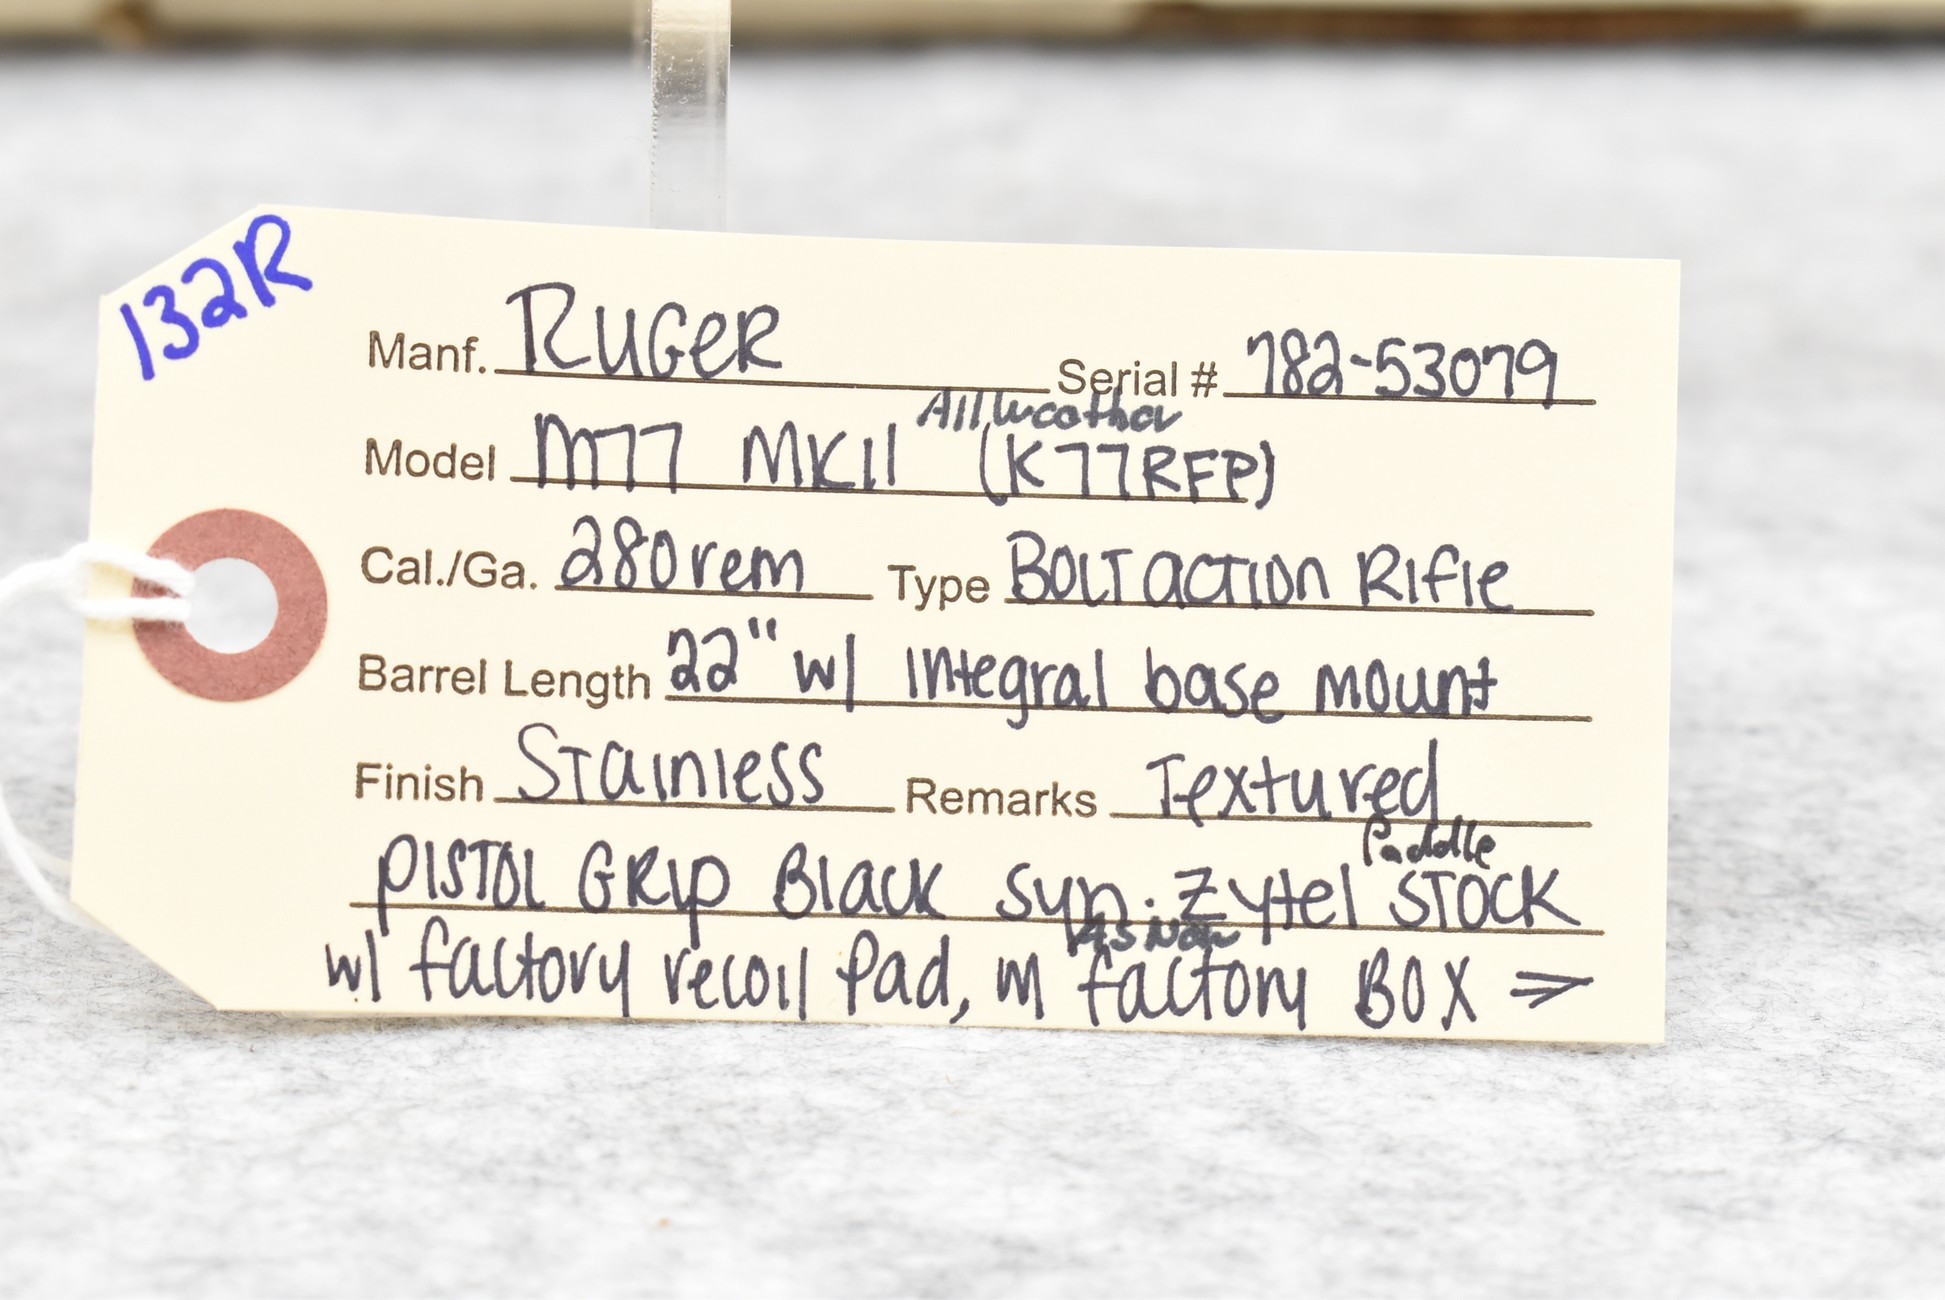 132R
Manf. RUGER Serial # 782-53079
All Weather
Model M77 MKII (K77RFP)
Cal./Ga. 280 rem Type BOLT ACTION RIFLE
Barrel Length 22" w/ Integral base mount
Finish Stainless Remarks Textured
Paddle
PISTOL GRIP Black Syn. Zytel STOCK
As New
w/ factory recoil Pad, IN factory BOX ⇒